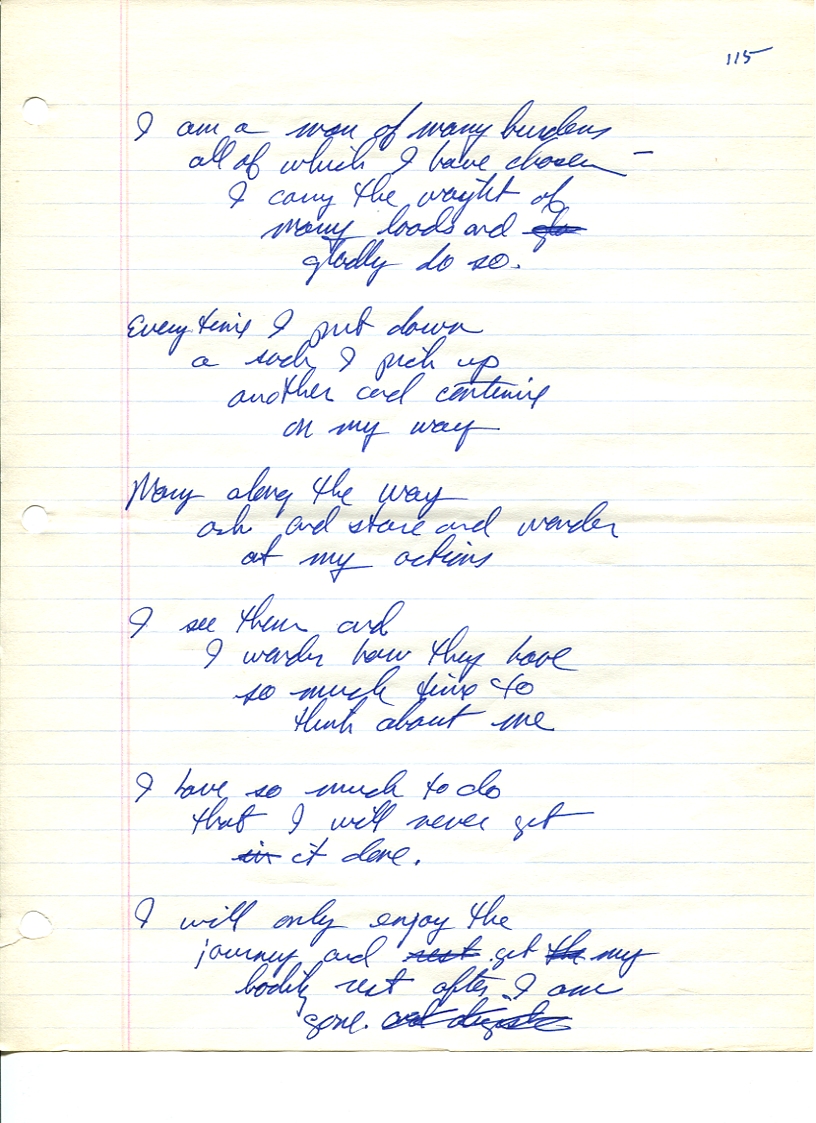 115
I am a man of many burdens
all of which I have chosen –
I carry the weight of
many loads and
gladly do so.
Everytime I put down
a sack I pick up
another and continue
on my way
Many along the way
ask and stare and wonder
at my actions
I see them and
I wonder how they have
so much time to
think about me
I have so much to do
that I will never get
it done.
I will only enjoy the
journey and rest get the my
bodily rest after I am
gone.